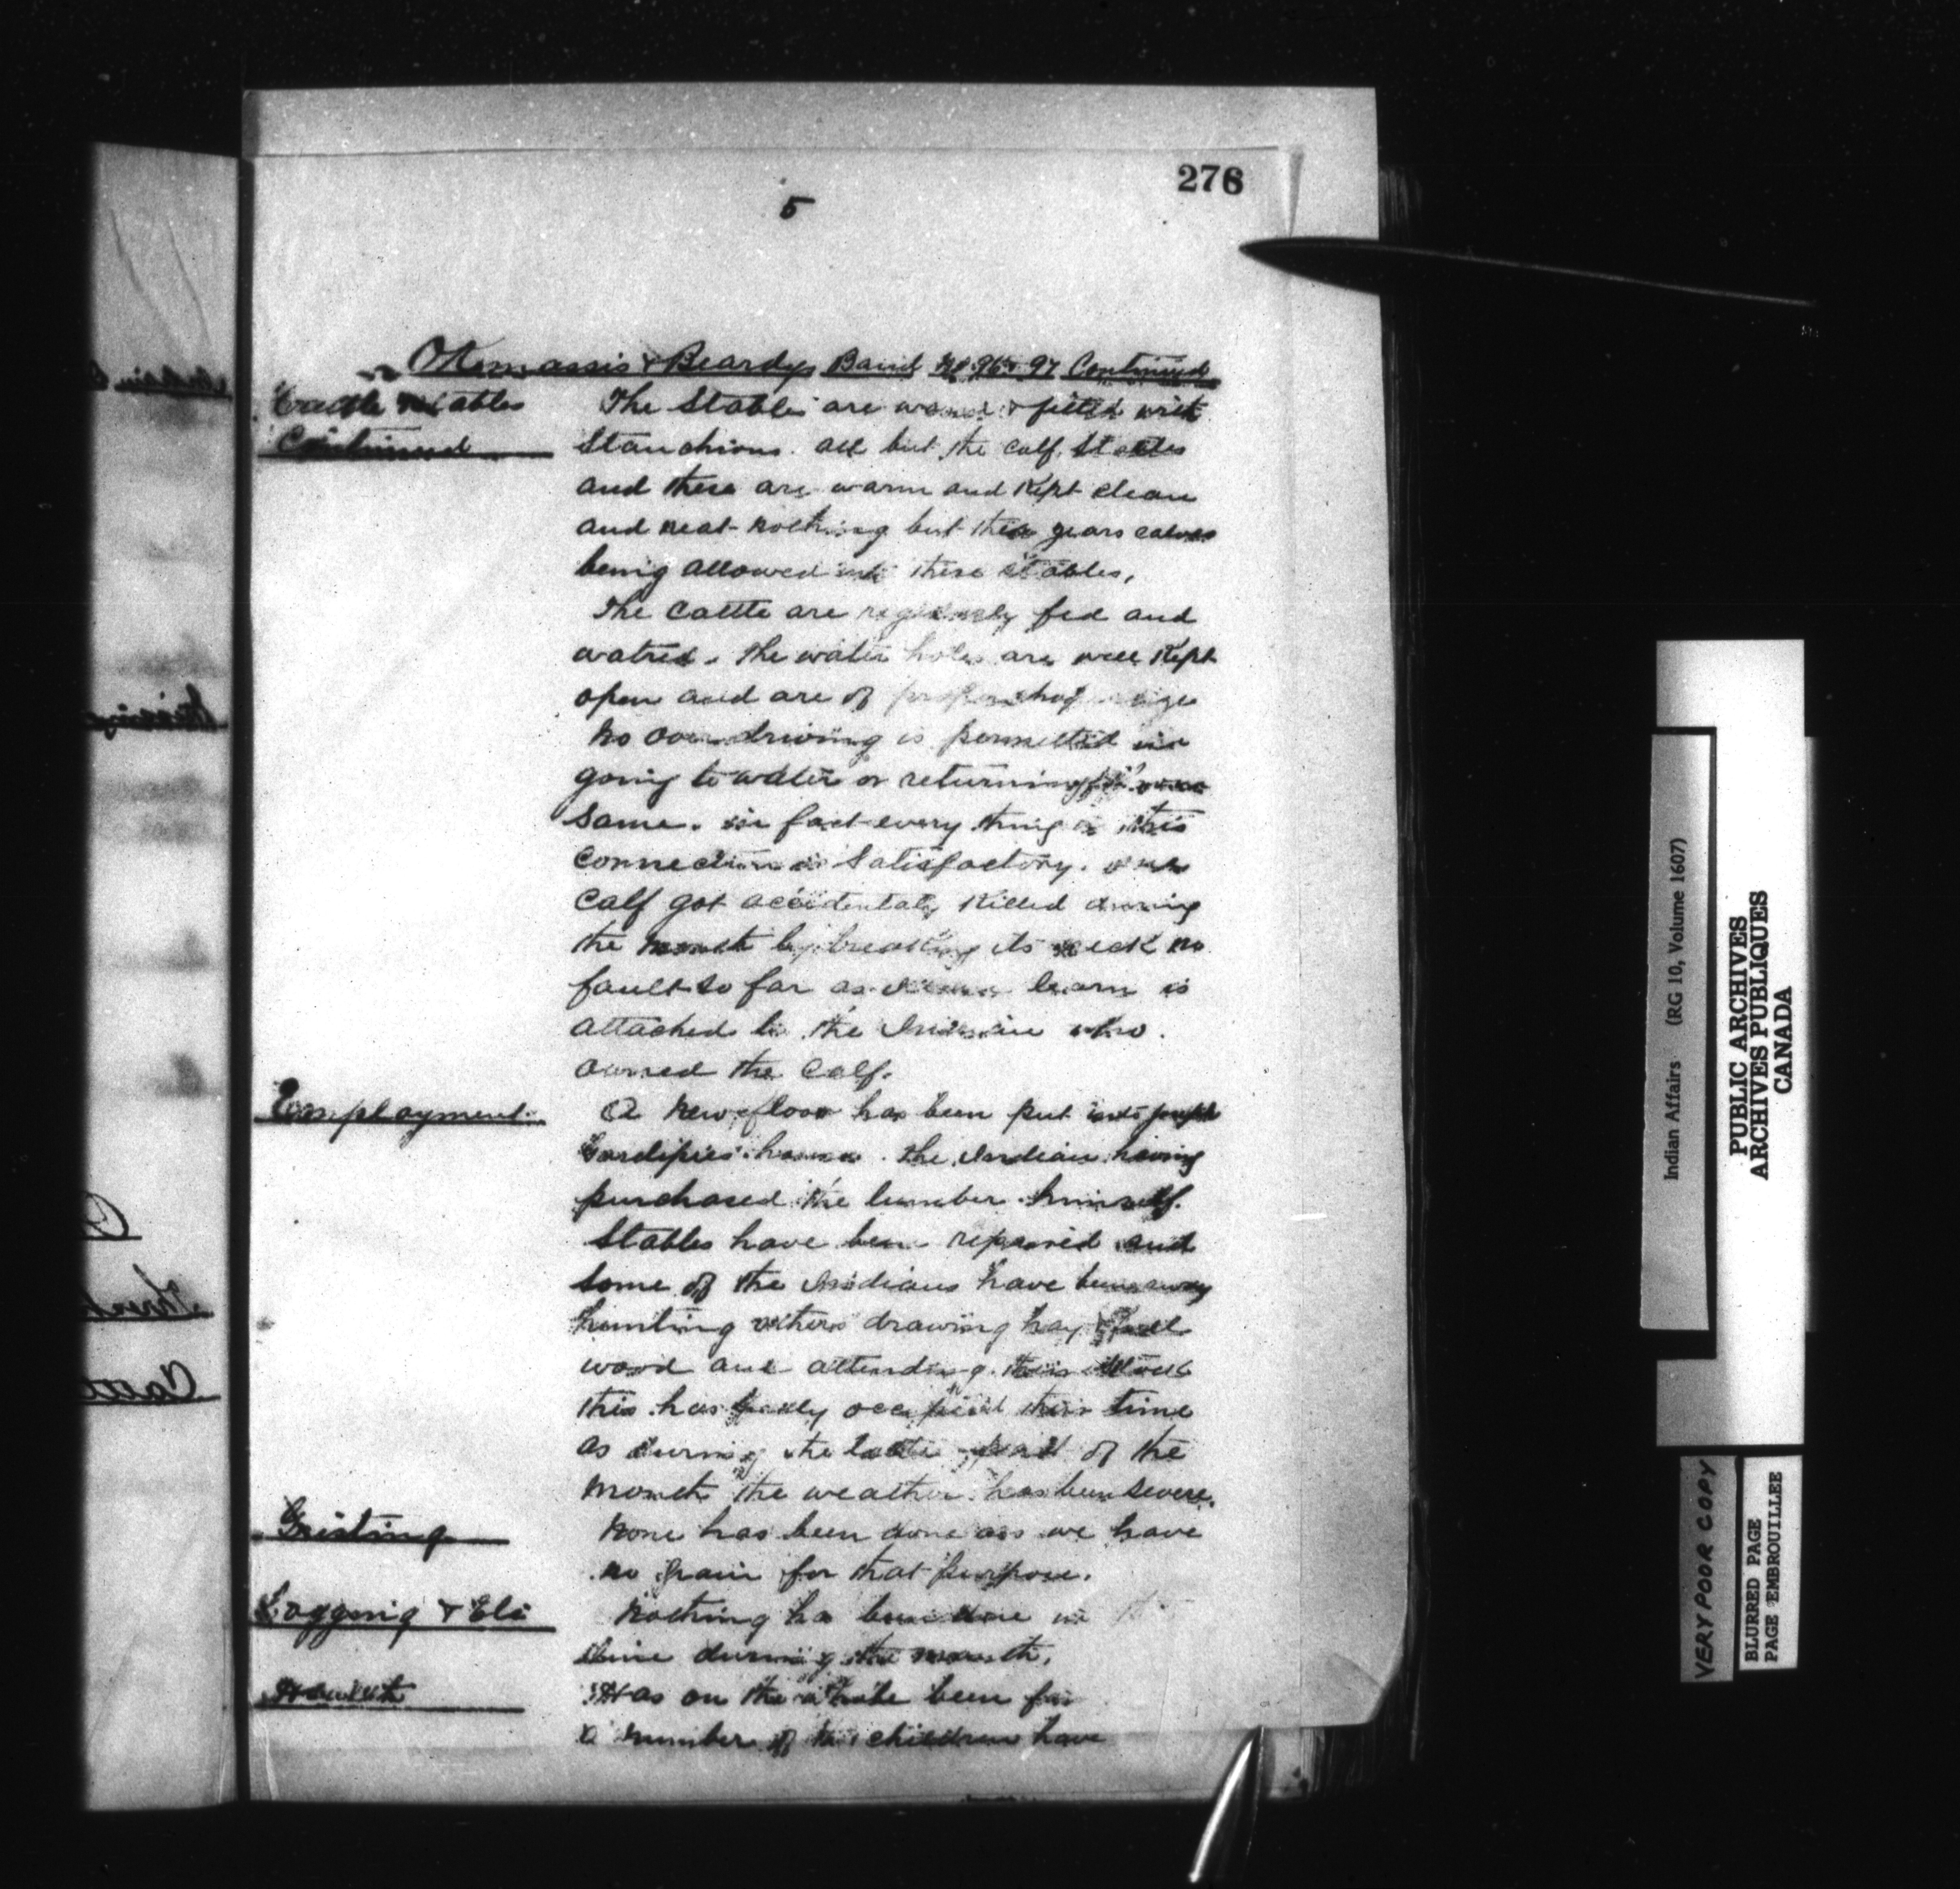 276
5
Okemassis & Beardys Band No 96 & 97 Continued
Cattle Stables
Continued
The Stables are warm & fitted with
Stanchions. all but the calf Stables
and these are warm and Kept clean
and neat nothing but this years calves
being allowed into these stables,
The Cattle are regularly fed and
watred. the water holes are well Kept
open and are of proper size
No over driving is permitted in
going to water or returning from
Same. in fact every thing in this
Connection is Satisfactory. one
Calf got accidentaly Killed during
the month by breaking its neck no
fault so far as learn is
attached to the Indian who
owned the Calf.
Employment
A New floor has been put into Joseph
Gardipies house. the Indian having
purchased the lumber himself.
Stables have been repaired and
some of the Indians have been away
hunting others drawing hay
wood and attending their Stock
this has fully occupied their time
as during the latter part of the
month the weather has been Severe.
Gristing
None has been done as we have
no grain for that purpose.
Logging & Etc
Nothing has been done in
line during the month.
Health
Has on the whole been fair
a number of the children have
Indian Affairs (RG 10, Volume 1607)
PUBLIC ARCHIVES
ARCHIVES PUBLIQUES
CANADA
VERY POOR COPY
BLURRED PAGE
PAGE EMBROUILLEE